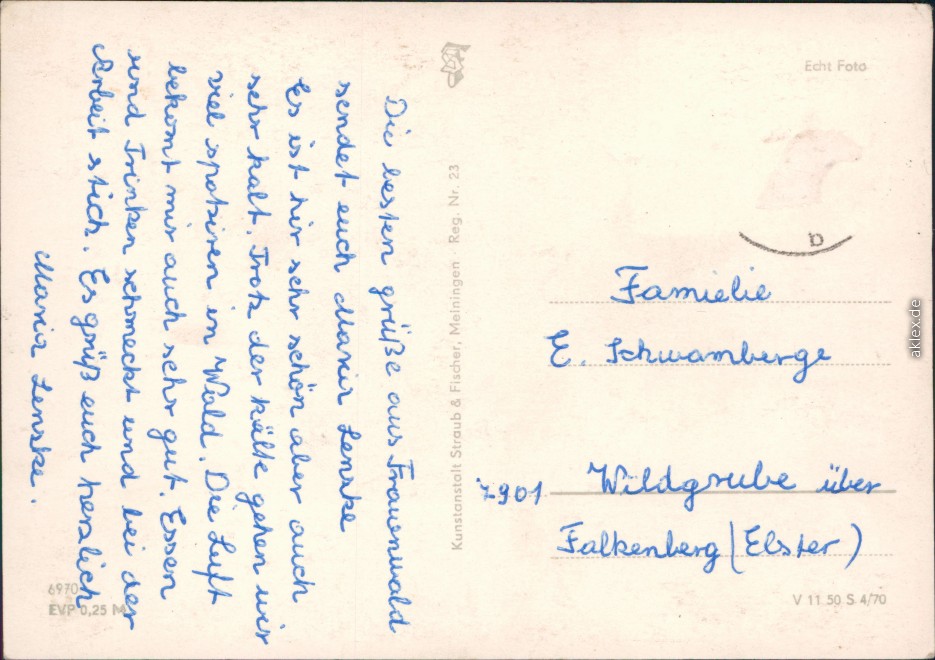 Die besten grüße aus Frauenwald
sendet euch Maria Lenske
Es ist hir sehr schön aber auch
sehr kalt. Trotz der kälte gehen wir
viel spatziren in Wald. Die Luft
bekomt mir auch sehr gut. Essen
und Trinken schmeckt und bei der
Arbeit stich. Es grüß euch herzlich
Maria Lenske.
Kunstanstalt Straub & Fischer, Meiningen · Reg. Nr. 23
6970
EVP 0,25 M
Echt Foto
b
Familie
E. Schwamberge
7901 Wildgrube über
Falkenberg (Elster)
V 11 50 S 4/70
aklex.de